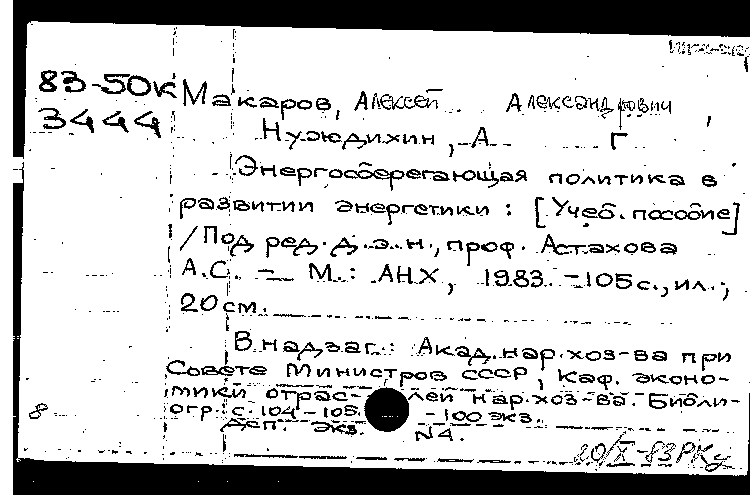 83-50К
3444
Макаров, Алексей Александрович,
Нуждихин, А. Г
Энергосберегающая политика в
развитии энергетики : [Учеб. пособие]
/ Под ред. д.э.н., проф. Астахова
А.С. – М.: АНХ, 1983. – 105 с., ил.;
20 см.
В надзаг.: Акад. нар. хоз-ва при
Совете Министров СССР, Каф. эконо-
мики отрас- лей нар. хоз-ва. Библи-
огр.: с. 104-105. -100 экз.
8 Деп. экз. N4.
20/X-83